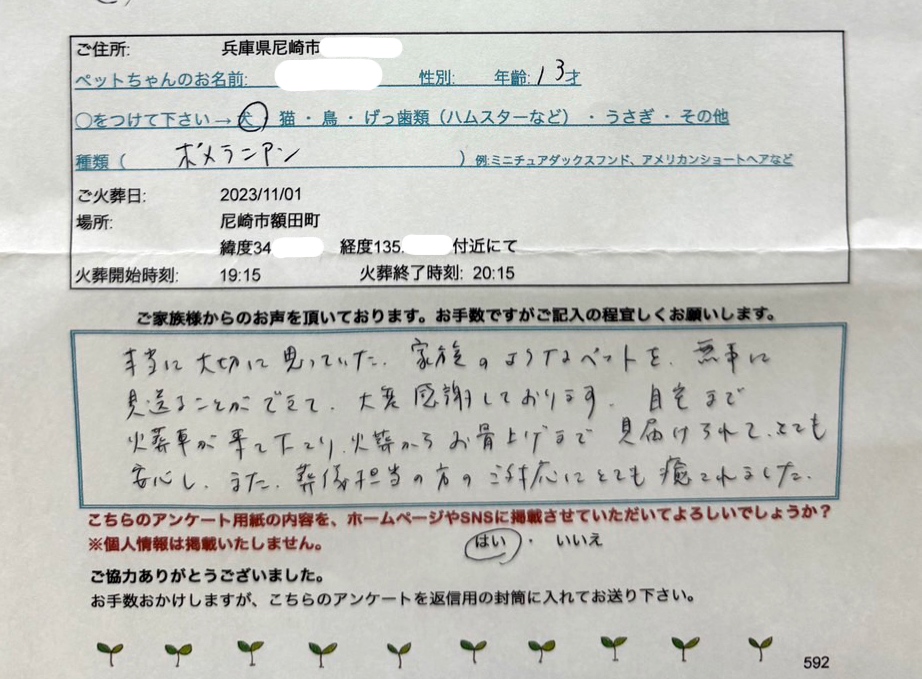 ご住所: 兵庫県尼崎市
ペットちゃんのお名前: 性別: 年齢: 13才
○をつけて下さい→ 犬 猫 ・ 鳥 ・ げっ歯類（ハムスターなど） ・ うさぎ ・ その他
種類（ ポメラニアン ）例:ミニチュアダックスフンド、アメリカンショートヘアなど
ご火葬日: 2023/11/01
場所: 尼崎市額田町
緯度34 経度135. 付近にて
火葬開始時刻: 19:15 火葬終了時刻: 20:15
ご家族様からのお声を頂いております。お手数ですがご記入の程宜しくお願いします。
本当に大切に思っていた、家族のようなペットを、無事に
見送ることができて、大変感謝しております。自宅まで
火葬車が来て下さり、火葬からお骨上げまで見届けられて、とても
安心し、また、葬儀担当の方のご対応にとても癒されました。
こちらのアンケート用紙の内容を、ホームページやSNSに掲載させていただいてよろしいでしょうか？
※個人情報は掲載いたしません。 はい ・ いいえ
ご協力ありがとうございました。
お手数おかけしますが、こちらのアンケートを返信用の封筒に入れてお送り下さい。
592